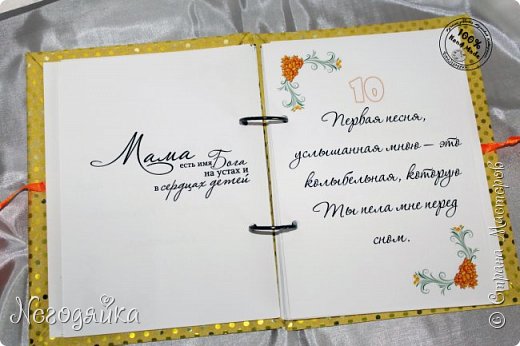 Мама
есть имя Бога
на устах и
в сердцах детей
10
Первая песня,
услышанная мною — это
колыбельная, которую
Ты пела мне перед
сном.
100%
Hand Made
Негодяйка
© Страна Мастеров